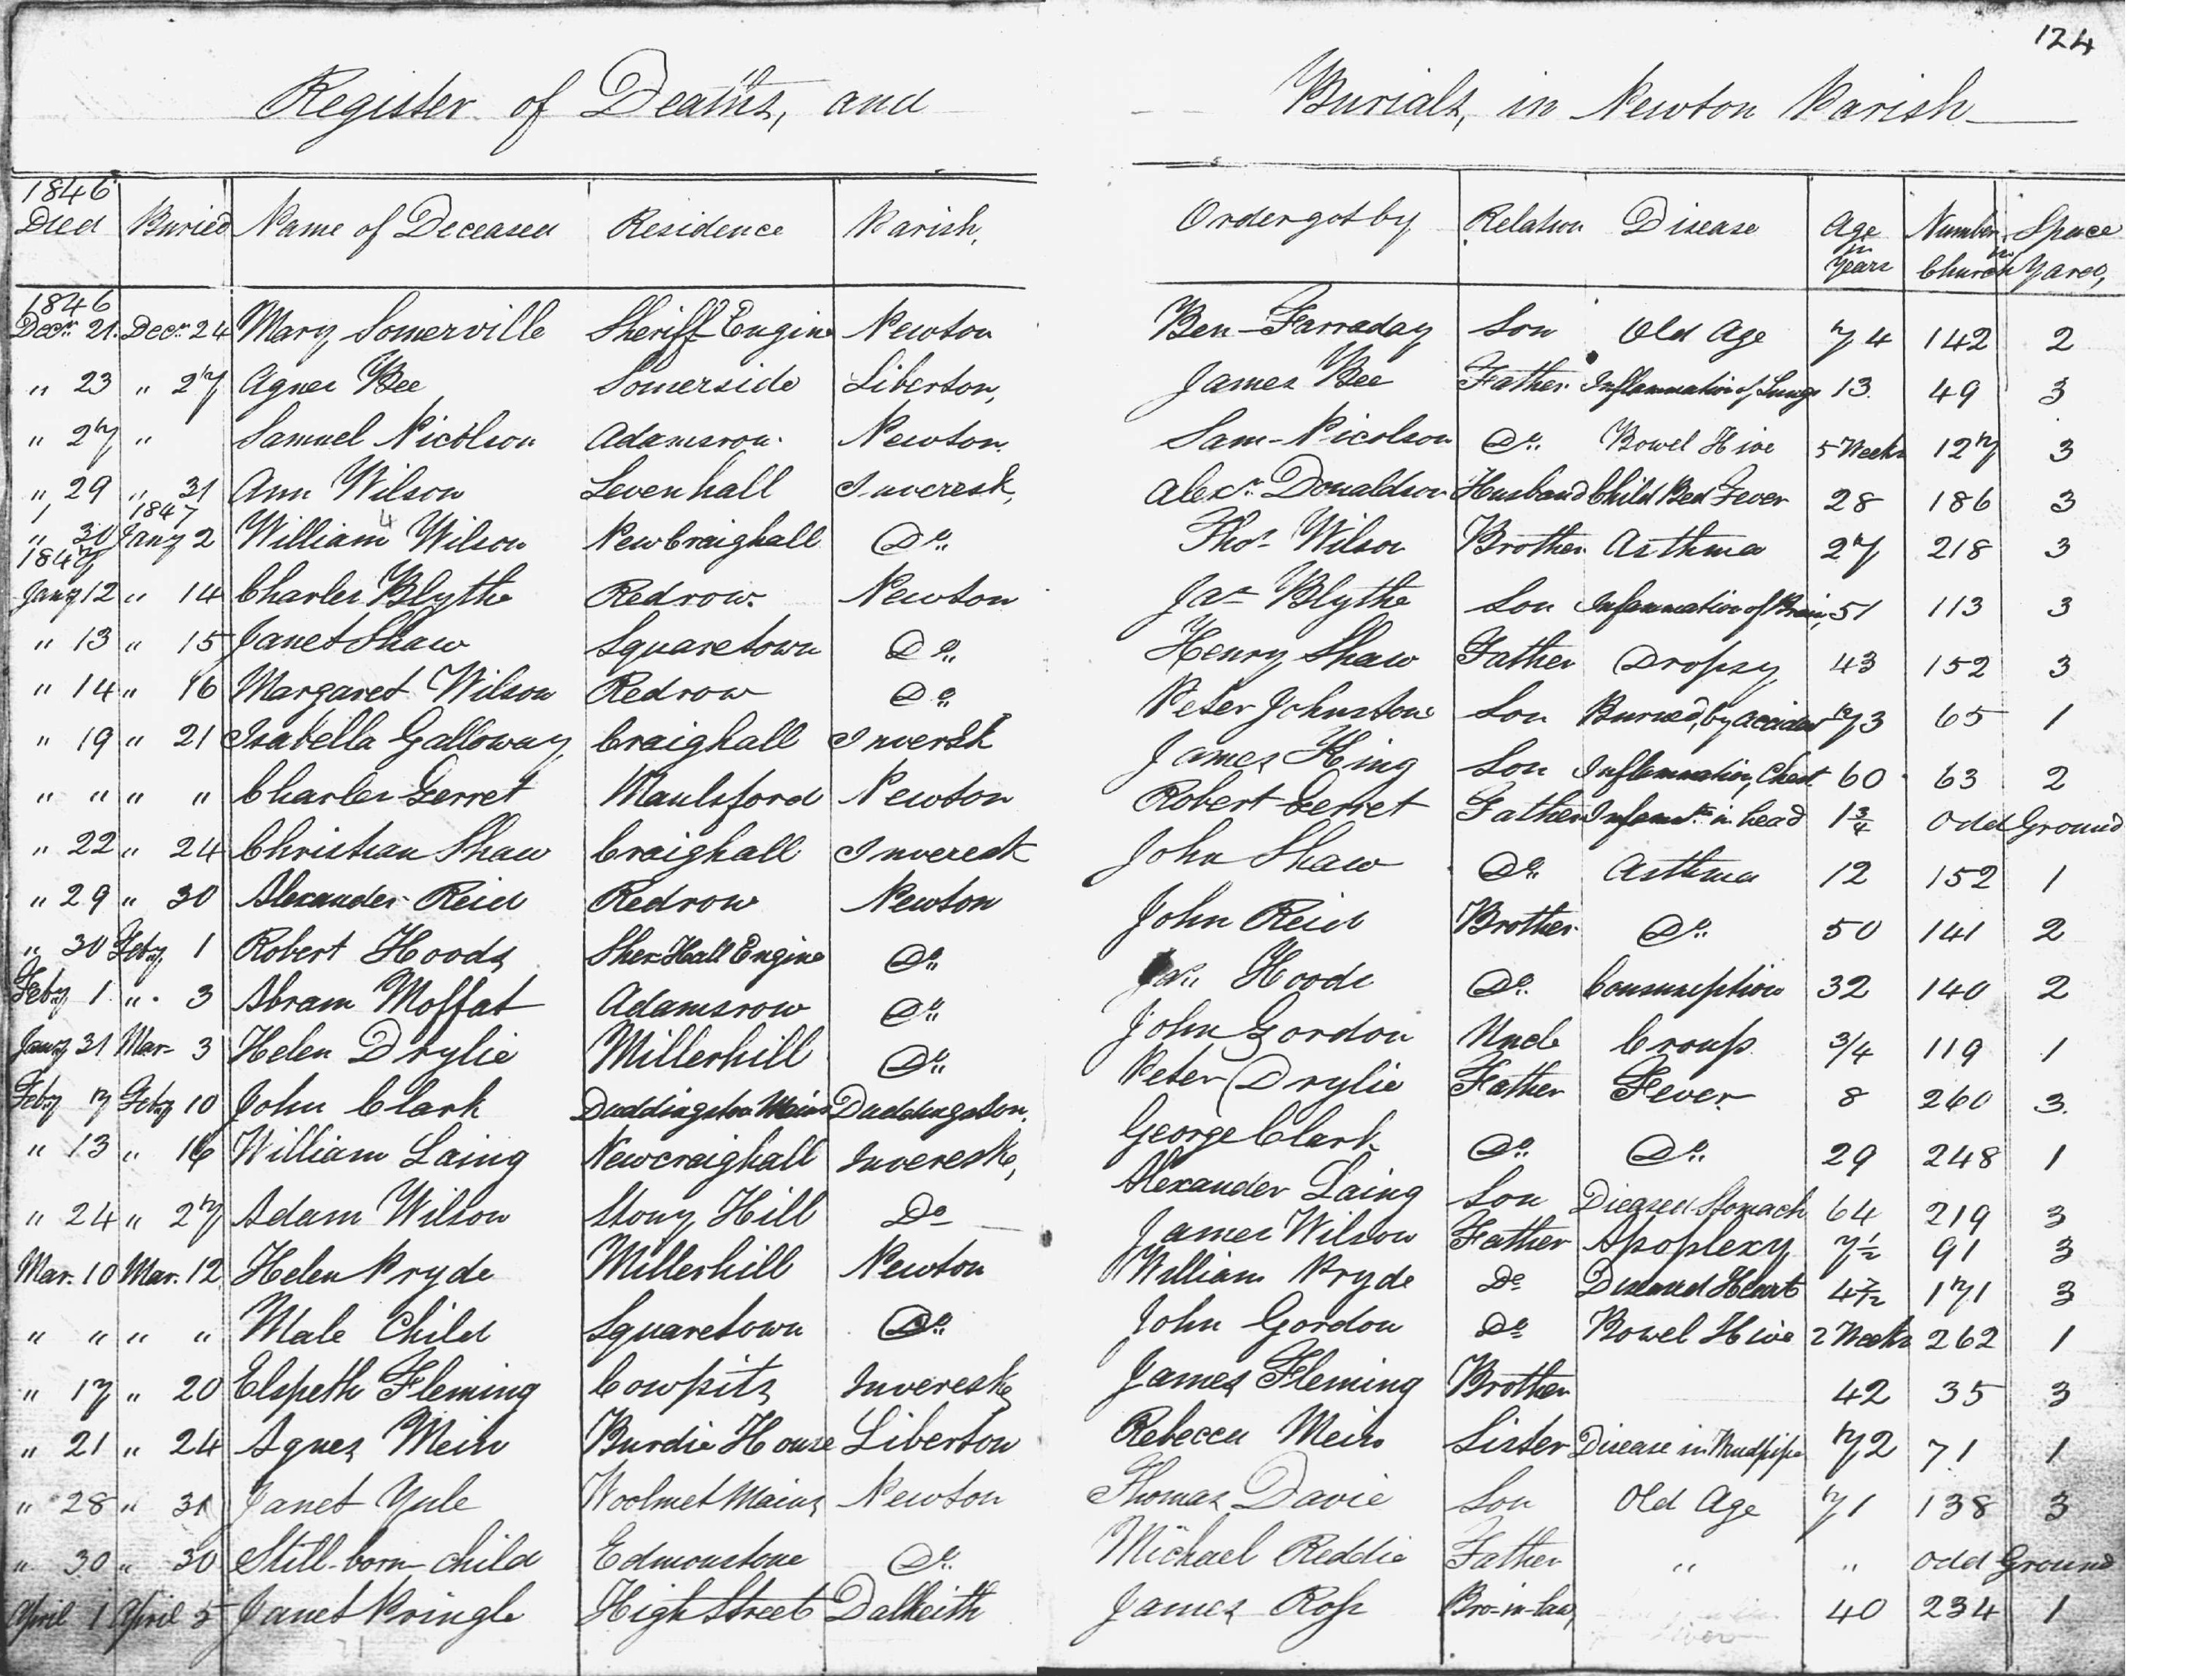 124
Register of Deaths, and Burials, in Newton Parish
1846
Died Buried Name of Deceased Residence Parish, Order got by Relation Disease Age in Years Number in Church Space Yards,
1846
Decr. 21. Decr. 24 Mary Somerville Sheriff Engine Newton Ben- Farraday Son Old Age 74 142 2
" 23 " 27 Agnes Bee Somerside Liberton, James Bee Father Inflammation of Lungs 13 49 3
" 27 " Samuel Nicolson Adamsrow Newton Sam- Nicolson Do. Bowel Hive 5 Weeks 127 3
" 29 " 31 Ann Wilson Levenhall Inveresk, Alexr. Donaldson Husband Child Bed Fever 28 186 3
1847
" 30 Jany 2 William Wilson New Craighall Do. Thos. Wilson Brother Asthma 27 218 3
1847
Jany 12 " 14 Charles Blythe Redrow Newton Jas Blythe Son Infammation of Brain, 51 113 3
" 13 " 15 Janet Shaw Squaretown Do. Henry Shaw Father Dropsy 43 152 3
" 14 " 16 Margaret Wilson Redrow Do. Peter Johnstone Son Buried, by accident 73 65 1
" 19 " 21 Isabella Galloway Craighall Inversk James King Son Inflammation, Chest 60 63 2
" " " " Charles Gerret Maulsford Newton Robert Gerret Father in head 1 3/4 Odd Ground
" 22 " 24 Christian Shaw Craighall Inveresk John Shaw Do. Asthma 12 152 1
" 29 " 30 Alexander Reid Redrow Newton John Reid Brother Do. 50 141 2
" 30 Feby 1 Robert Hoods Sher Hall Engine Do. Hoods Do. Consumption 32 140 2
Feby 1 " 3 Abram Moffat Adamsrow Do. John Gordon Uncle Croup 3/4 119 1
Jany 31 Mar. 3 Helen Drylie Millerhill Do. Peter Drylie Father Fever 8 260 3.
Feby 7 Feby 10 John Clark Duddingston Mains Duddingston. George Clark Do. Do. 29 248 1
" 13 " 16 William Laing Newcraighall Inveresk, Alexander Laing Son Dieased Stomach 64 219 3
" 24 " 27 Adam Wilson Stony Hill Do James Wilson Father Apoplexy 7 1/2 91 3
Mar. 10 Mar. 12 Helen Pryde Millerhill Newton William Pryde Do Diseased Heart 4 7/12 171 3
" " " " Male Child Squaretown Do. John Gordon Do Bowel Hive 2 Weeks 262 1
" 17 " 20 Elspeth Fleming Cowpits Inveresk James Fleming Brother 42 35 3
" 21 " 24 Agnes Mein Burdie House Liberton Rebecca Mein Sister Disease in Windpipe 72 71 1
" 28 " 31 Janet Yule Woolmet Mains Newton Thomas Davie Son Old Age 71 138 3
" 30 " 30 Still-born child Edmonstone Do. Michael Reddie Father " " Odd Ground
April 1 April 5 Janet Pringle High Street Dalkeith James Ross Bro-in-law, 40 234 1